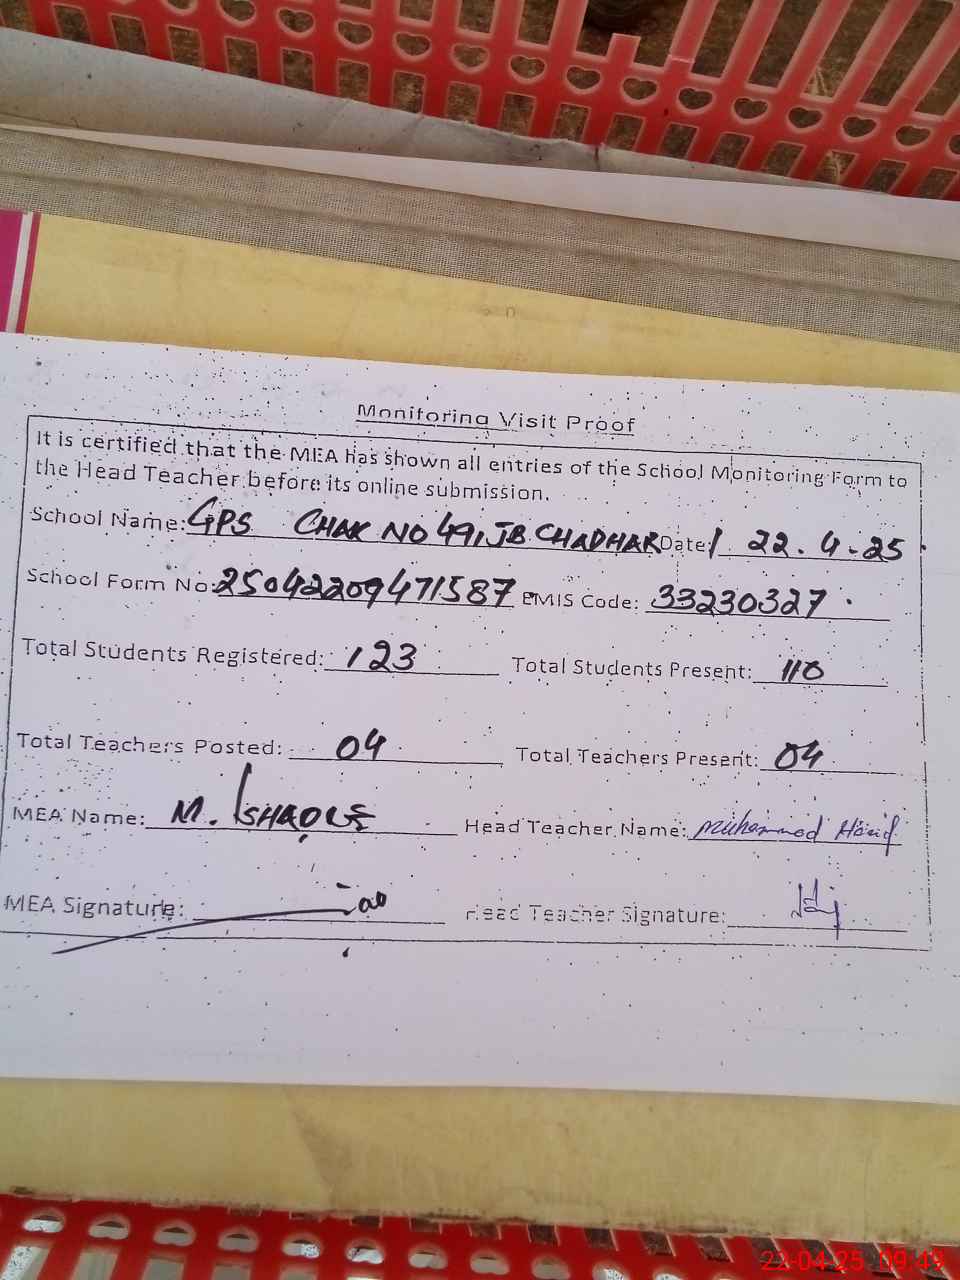 Monitoring Visit Proof
It is certified that the MEA has shown all entries of the School Monitoring Form to
the Head Teacher before its online submission.
School Name: GPS CHAK NO 491 JB CHADHAR Date: 22.4.25
School Form No: 25042209471587 EMIS Code: 33230327
Total Students Registered: 123 Total Students Present: 110
Total Teachers Posted: 04 Total Teachers Present: 04
MEA Name: M. Head Teacher Name: Muhammad
MEA Signature: Head Teacher Signature:
22-04-25 09:49